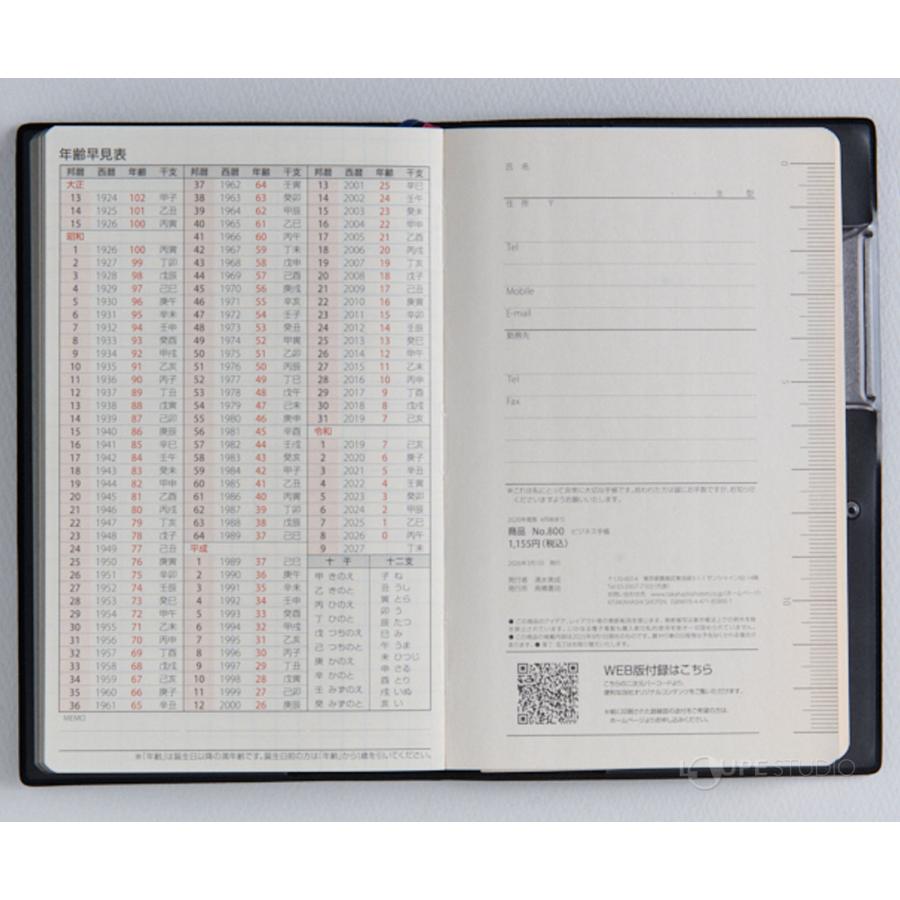 年齢早見表
邦暦 西暦 年齢 干支
大正
13 1924 102 甲子
14 1925 101 乙丑
15 1926 100 丙寅
昭和
1 1926 100 丙寅
2 1927 99 丁卯
3 1928 98 戊辰
4 1929 97 己巳
5 1930 96 庚午
6 1931 95 辛未
7 1932 94 壬申
8 1933 93 癸酉
9 1934 92 甲戌
10 1935 91 乙亥
11 1936 90 丙子
12 1937 89 丁丑
13 1938 88 戊寅
14 1939 87 己卯
15 1940 86 庚辰
16 1941 85 辛巳
17 1942 84 壬午
18 1943 83 癸未
19 1944 82 甲申
20 1945 81 乙酉
21 1946 80 丙戌
22 1947 79 丁亥
23 1948 78 戊子
24 1949 77 己丑
25 1950 76 庚寅
26 1951 75 辛卯
27 1952 74 壬辰
28 1953 73 癸巳
29 1954 72 甲午
30 1955 71 乙未
31 1956 70 丙申
32 1957 69 丁酉
33 1958 68 戊戌
34 1959 67 己亥
35 1960 66 庚子
36 1961 65 辛丑
邦暦 西暦 年齢 干支
37 1962 64 壬寅
38 1963 63 癸卯
39 1964 62 甲辰
40 1965 61 乙巳
41 1966 60 丙午
42 1967 59 丁未
43 1968 58 戊申
44 1969 57 己酉
45 1970 56 庚戌
46 1971 55 辛亥
47 1972 54 壬子
48 1973 53 癸丑
49 1974 52 甲寅
50 1975 51 乙卯
51 1976 50 丙辰
52 1977 49 丁巳
53 1978 48 戊午
54 1979 47 己未
55 1980 46 庚申
56 1981 45 辛酉
57 1982 44 壬戌
58 1983 43 癸亥
59 1984 42 甲子
60 1985 41 乙丑
61 1986 40 丙寅
62 1987 39 丁卯
63 1988 38 戊辰
64 1989 37 己巳
平成
1 1989 37 己巳
2 1990 36 庚午
3 1991 35 辛未
4 1992 34 壬申
5 1993 33 癸酉
6 1994 32 甲戌
7 1995 31 乙亥
8 1996 30 丙子
9 1997 29 丁丑
10 1998 28 戊寅
11 1999 27 己卯
12 2000 26 庚辰
邦暦 西暦 年齢 干支
13 2001 25 辛巳
14 2002 24 壬午
15 2003 23 癸未
16 2004 22 甲申
17 2005 21 乙酉
18 2006 20 丙戌
19 2007 19 丁亥
20 2008 18 戊子
21 2009 17 己丑
22 2010 16 庚寅
23 2011 15 辛卯
24 2012 14 壬辰
25 2013 13 癸巳
26 2014 12 甲午
27 2015 11 乙未
28 2016 10 丙申
29 2017 9 丁酉
30 2018 8 戊戌
31 2019 7 己亥
令和
1 2019 7 己亥
2 2020 6 庚子
3 2021 5 辛丑
4 2022 4 壬寅
5 2023 3 癸卯
6 2024 2 甲辰
7 2025 1 乙巳
8 2026 0 丙午
9 2027 丁未
十干 十二支
甲 きのえ
乙 きのと
丙 ひのえ
丁 ひのと
戊 つちのえ
己 つちのと
庚 かのえ
辛 かのと
壬 みずのえ
癸 みずのと
子 ね
丑 うし
寅 とら
卯 う
辰 たつ
巳 み
午 うま
未 ひつじ
申 さる
酉 とり
戌 いぬ
亥 い
MEMO
※「年齢」は誕生日以降の満年齢です。誕生日前の方は「年齢」から1歳を引いてください。
氏 名
生 型
住 所 〒
Tel
Mobile
E-mail
勤務先
Tel
Fax
商品 No.800 ビジネス手帳
1,155円(税込)
発行所 高橋書店
WEB版付録はこちら
こちらの二次元バーコードより、
便利な当社オリジナルコンテンツをご覧いただけます。
ホームページよりお申し込みください。
0
5
10
LOUPE STUDIO